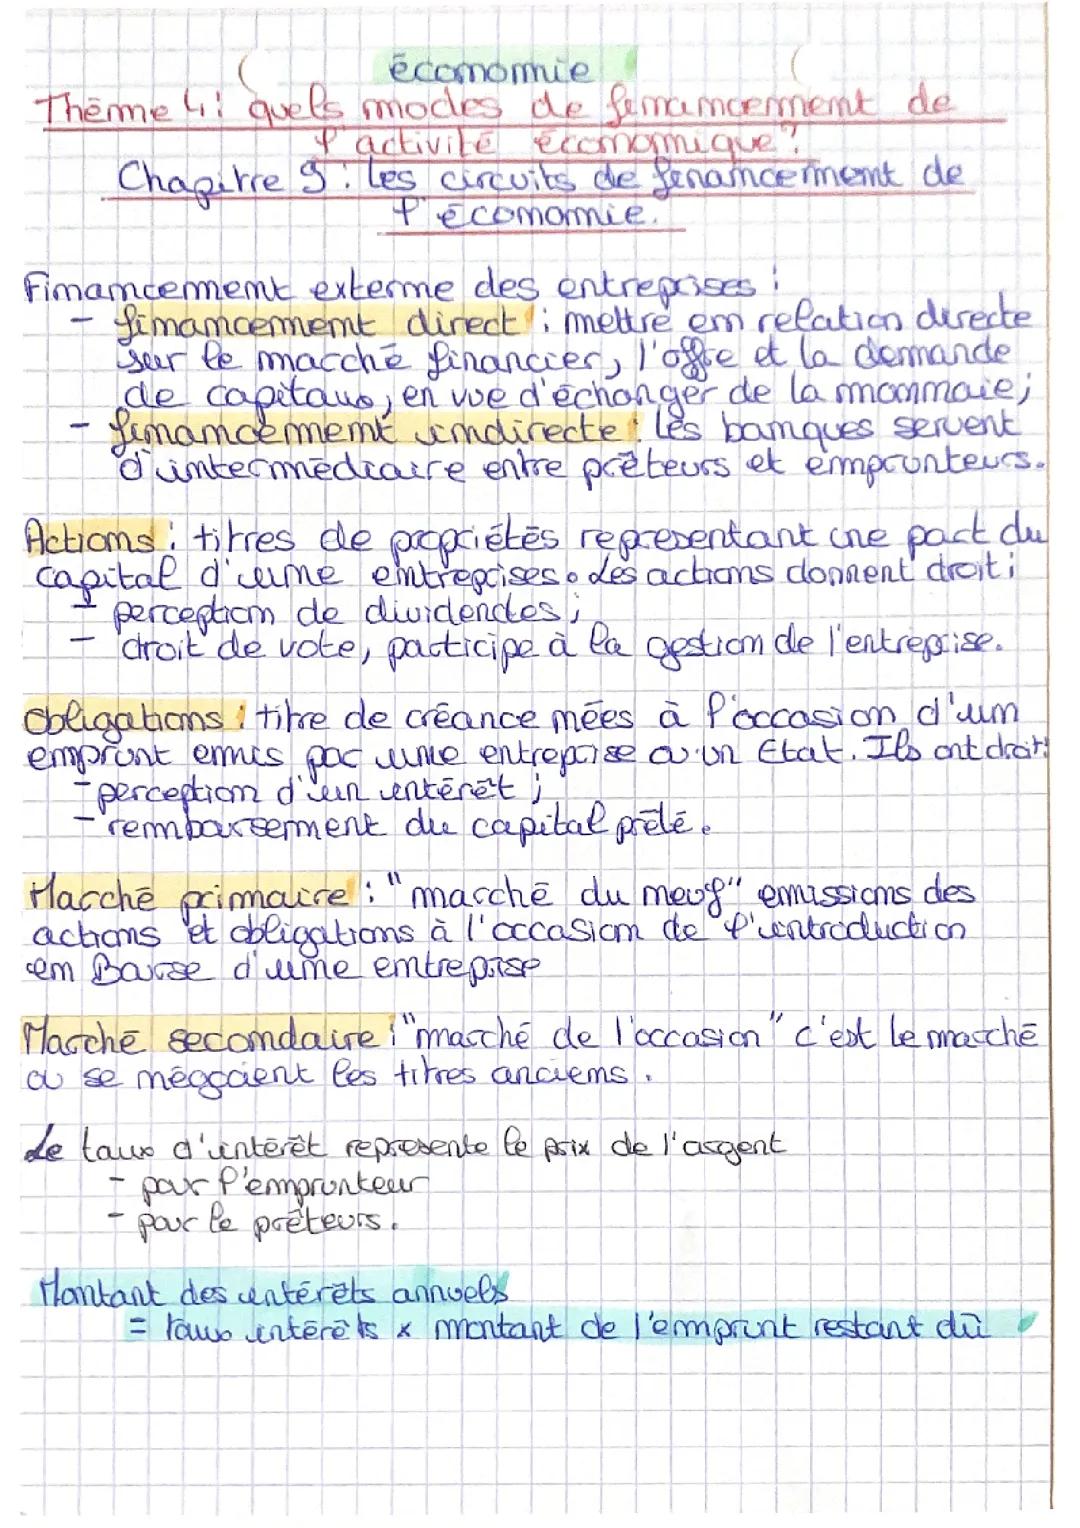 économie
Thème 4: quels modes de financement de
l'activité économique?
Chapitre 9: les circuits de financement de
l'économie.
Financement externe des entreprises :
- financement direct : mettre en relation directe
sur le marché financier, l'offre et la demande
de capitaux, en vue d'échanger de la monnaie;
- financement indirecte : les banques servent
d'intermédiaire entre prêteurs et emprunteurs.
Actions : titres de propriétés representant une part du
capital d'une entreprises. Les actions donnent droit :
- perception de dividendes;
- droit de vote, participe à la gestion de l'entreprise.
Obligations : titre de créance nées à l'occasion d'un
emprunt emis par une entreprise ou un Etat. Ils ont droit:
- perception d'un intérêt;
- remboursement du capital prêté.
Marché primaire : "marché du neuf" emissions des
actions et obligations à l'occasion de l'introduction
en Bourse d'une entreprise
Marché secondaire : "marché de l'occasion" c'est le marché
où se négocient les titres anciens.
Le taux d'intérêt represente le prix de l'argent
- pour l'emprunteur
- pour le prêteurs.
Montant des intérêts annuels
= taux intérêts x montant de l'emprunt restant dû